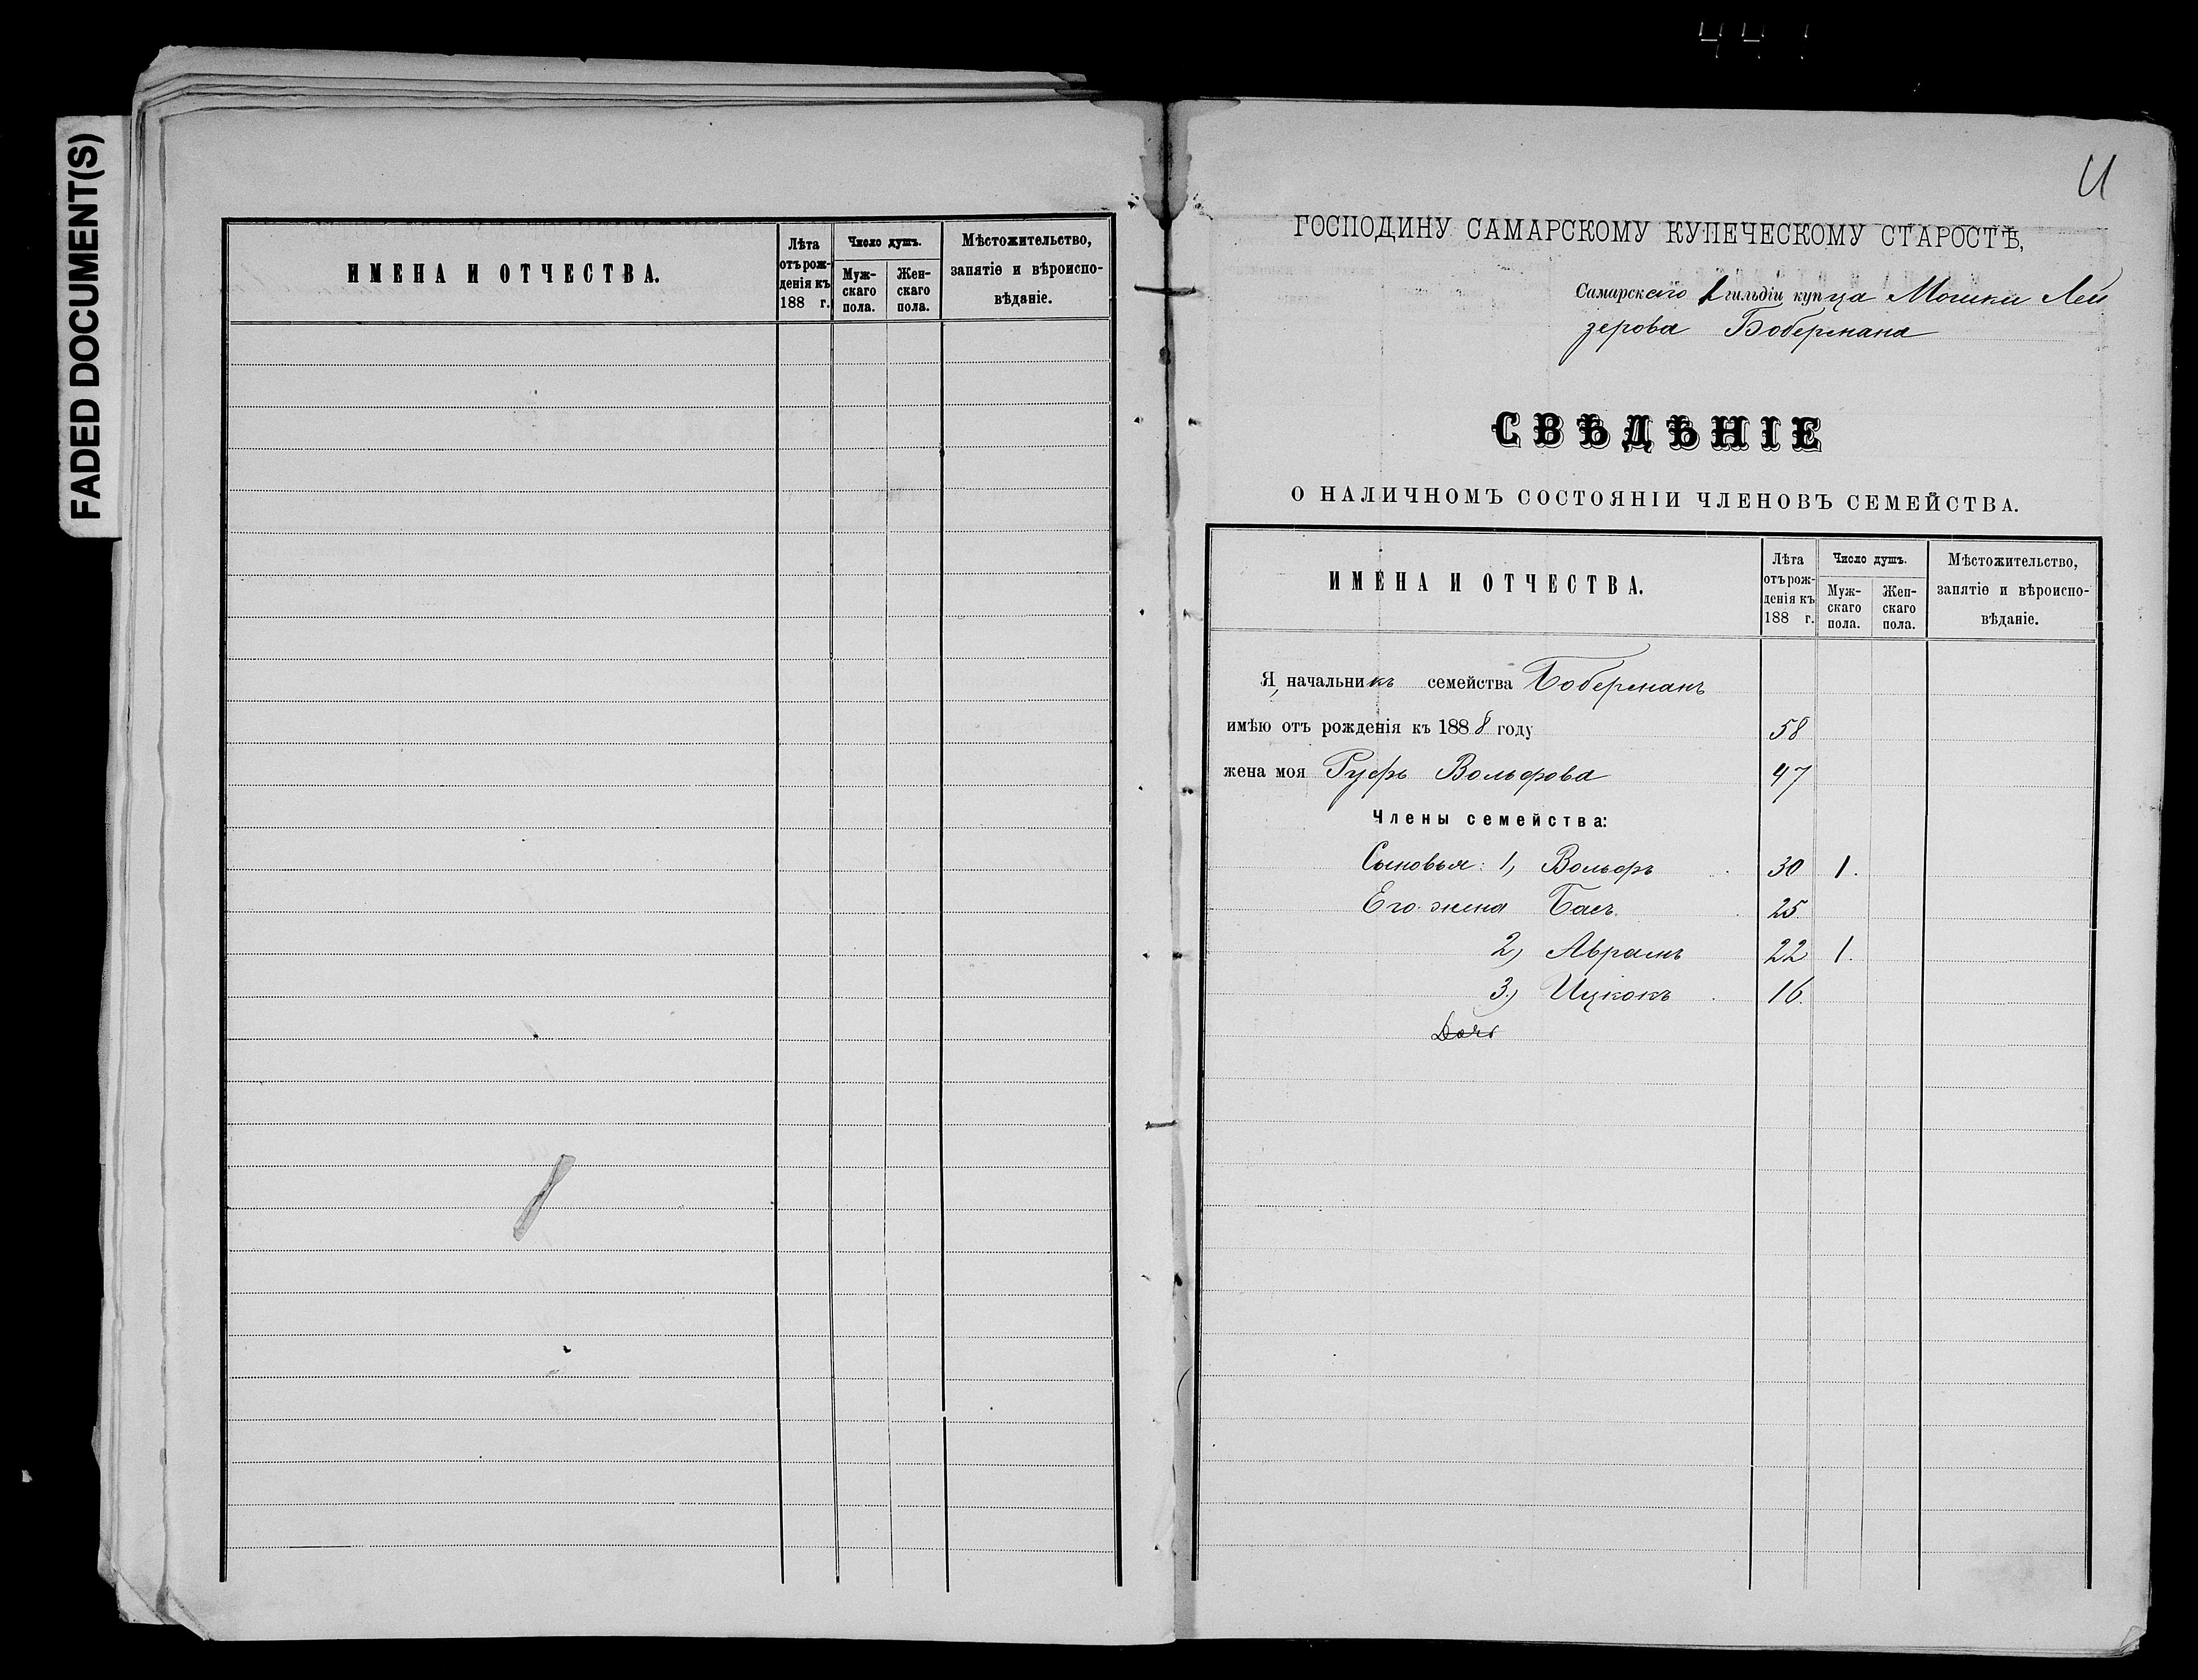 FADED DOCUMENT(S)
ИМЕНА И ОТЧЕСТВА.
Лѣта отъ рожденія къ 188 г.
Число душъ.
Мужскаго пола.
Женскаго пола.
Мѣстожительство, занятіе и вѣроисповѣданіе.
ГОСПОДИНУ САМАРСКОМУ КУПЕЧЕСКОМУ СТАРОСТѢ,
Самарскаго 1 гильдіи купца Мошки Лей
зерова Бобермана
СВѢДѢНІЕ
О НАЛИЧНОМЪ СОСТОЯНІИ ЧЛЕНОВЪ СЕМЕЙСТВА.
ИМЕНА И ОТЧЕСТВА.
Лѣта отъ рожденія къ 188 г.
Число душъ.
Мужскаго пола.
Женскаго пола.
Мѣстожительство, занятіе и вѣроисповѣданіе.
Я, начальникъ семейства Боберманъ
имѣю отъ рожденія къ 1888 году 58
жена моя Руфь Вольфова 47
Члены семейства:
Сыновья: 1, Вольфъ 30 1.
Его жена Бась 25
2, Аврамъ 22 1.
3, Ицкокъ 16
Дочь